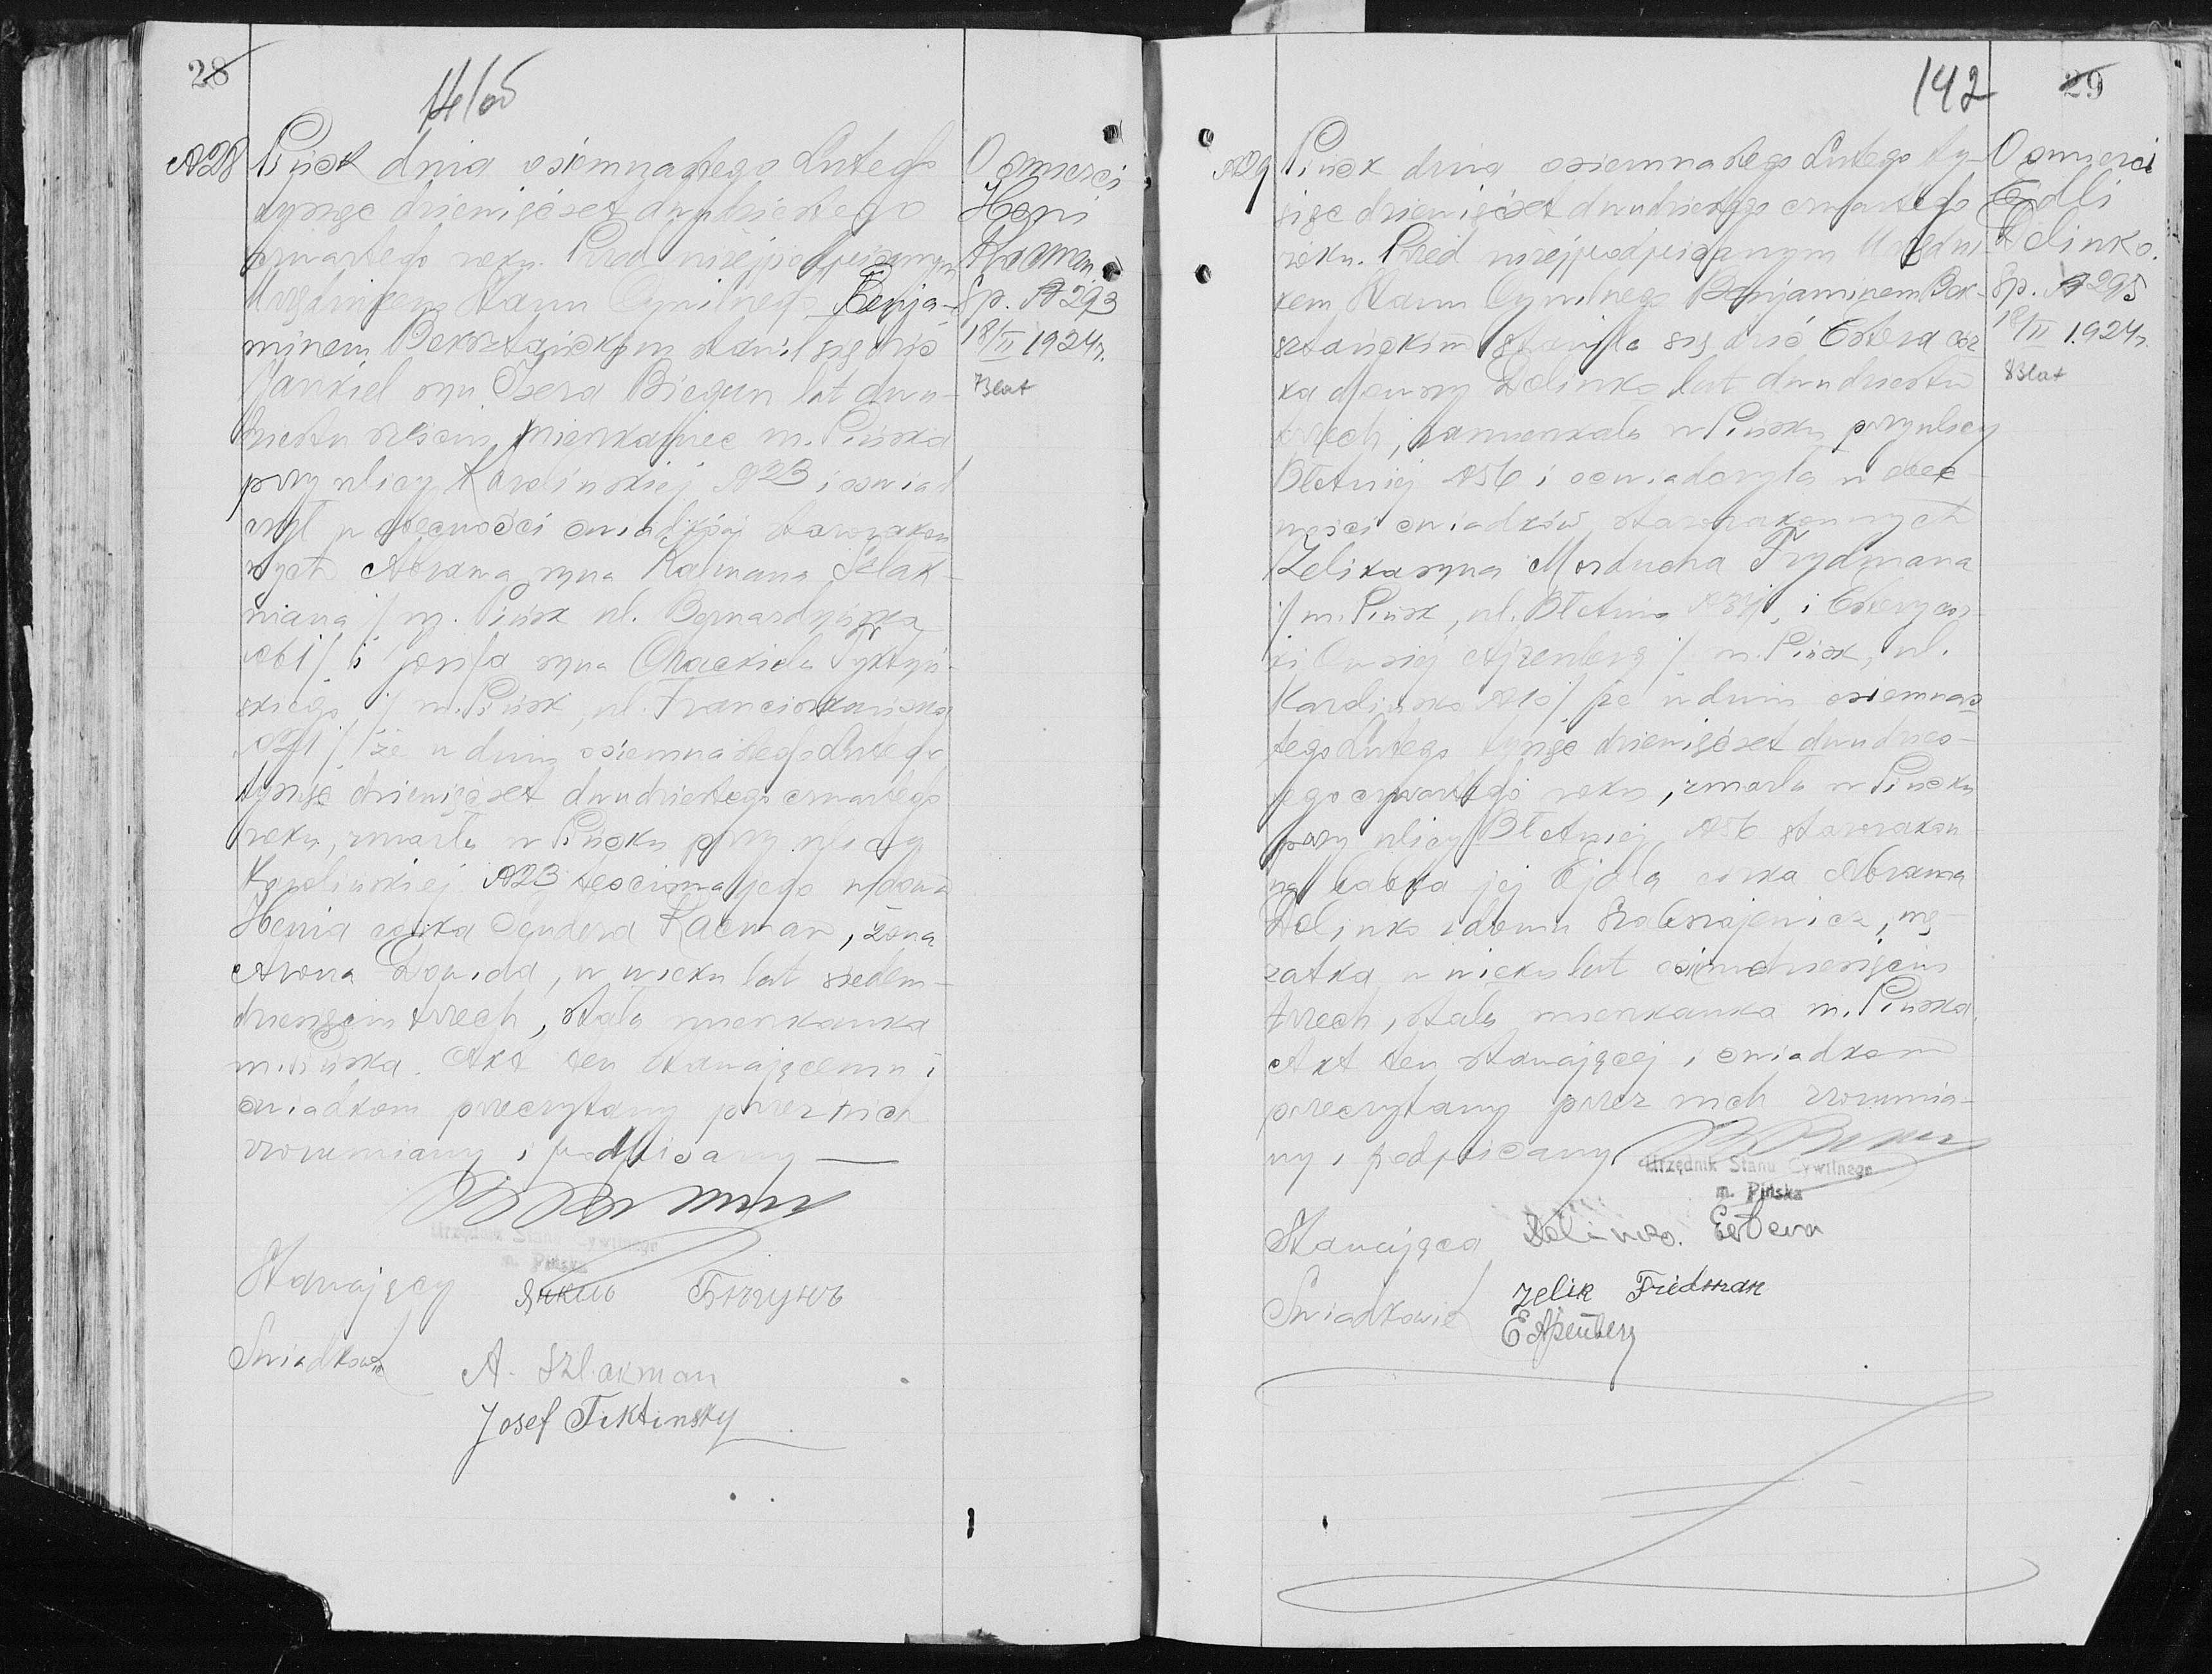 28
141 об
№28 Pińsk dnia osiemnastego Lutego
tysiąc dziewięćset dwudziestego
czwartego roku. Przed niżej podpisanym
Urzędnikiem Stanu Cywilnego Benja-
minem Boksztańskim stawił się dziś
Jankiel syn Osera Biegun lat dwu-
dziestu sześciu mieszkaniec m. Pińska
przy ulicy Karolińskiej №23 i oświad
czył w obecności świadków starozakon
nych Abrama syna Kalmana Szlak-
mana /m. Pińsk ul. Bernardyńska
№61/ i Josifa syna Chackiela Tyktyń-
skiego, /m. Pińsk, ul. Franciszkańska
/ że w dniu osiemnastego Lutego
tysiąc dziewięćset dwudziestego czwartego
roku, zmarła w Pińsku przy ulicy
Karolińskiej №23 teściowa jego wdowa
Henia córka Sendera Kacman, żona
Arona Dawida, w wieku lat siedem-
dziesięciu trzech, stała mieszkanka
m. Pińska. Akt ten stawającemu i
świadkom przeczytany przez nich
zrozumiany i podpisany —
Urzędnik Stanu Cywilnego
m. Pińska
Stawający Бигунъ
Świadkowie A. Szlakman
Josef Tiktinsky
O śmierci
Heni
Kacman.
Sp. №293
18/II 1924r.
73 lat
142 29
№29 Pińsk dnia osiemnastego Lutego ty-
siąc dziewięćset dwudziestego czwartego
roku. Przed niżej podpisanym Urzędni
kem Stanu Cywilnego Benjaminem Bok-
sztańskim stawiła się dziś Estera cór
ka Dolinko lat dwudziestu
trzech, zamieszkała w Pińsku przy ulicy
Błotniej №56 i oświadczyła w obec-
ności świadków starozakonnych
Zelika syna Morducha Frydmana
/m. Pińsk, ul. Błotnia i Estery cór-
ki Owsiej Ajzenberg /m. Pińsk, ul.
Karolińska №10/ że w dniu osiemnas
tego Lutego tysiąc dziewięćset dwudzies-
tego czwartego roku, zmarła w Pińsku
przy ulicy Błotniej №56 starozakon
na babka jej Ejdla córka Abrama
Dolinko z domu mę-
żatka w wieku lat osiemdziesięciu
trzech, stała mieszkanka m. Pińska.
Akt ten stawającej i świadkom
przeczytany przez nich zrozumia-
ny i podpisany
Urzędnik Stanu Cywilnego
m. Pińska
Stawająca Dolinko. Estera
Świadkowie Zelik Friedman
E Ajzenberg
O śmierci
Ejdli
Dolinko.
Sp. №295
18/II 1924r.
83 lat